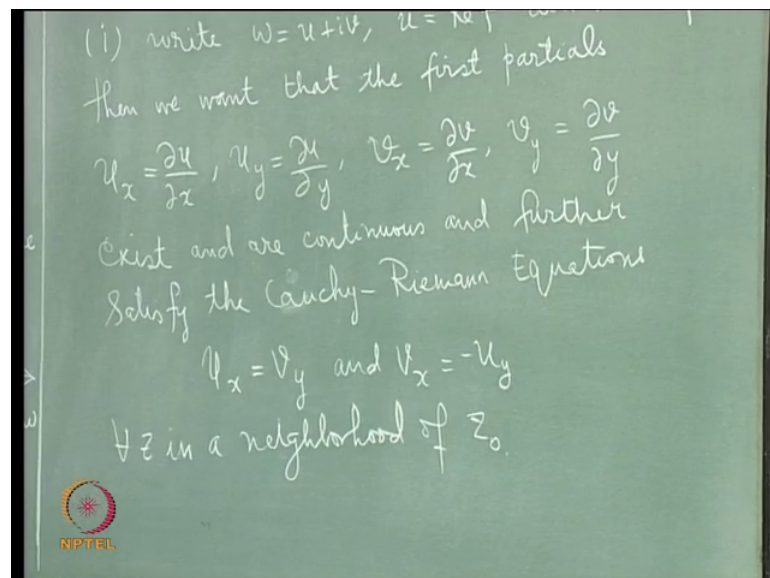 (i) write w = u+iv, u = Re f
then we want that the first partials
u_x = ∂u/∂x, u_y = ∂u/∂y, v_x = ∂v/∂x, v_y = ∂v/∂y
exist and are continuous and further
satisfy the Cauchy-Riemann Equations
u_x = v_y and v_x = -u_y
∀ z in a neighborhood of z_0.
NPTEL